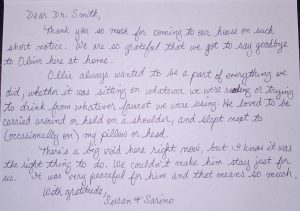 Dear Dr. Smith,
Thank you so much for coming to our house on such
short notice. We are so grateful that we got to say goodbye
to Oliver here at home.
Ollie always wanted to be a part of everything we
did, whether it was sitting on whatever we were reading or trying
to drink from whatever faucet we were using. He loved to be
carried around or held on a shoulder, and slept next to
(occasionally on) my pillow or head.
There's a big void here right now, but I know it was
the right thing to do. We couldn't make him stay just for
us. It was very peaceful for him and that means so much.
With gratitude,
Susan &